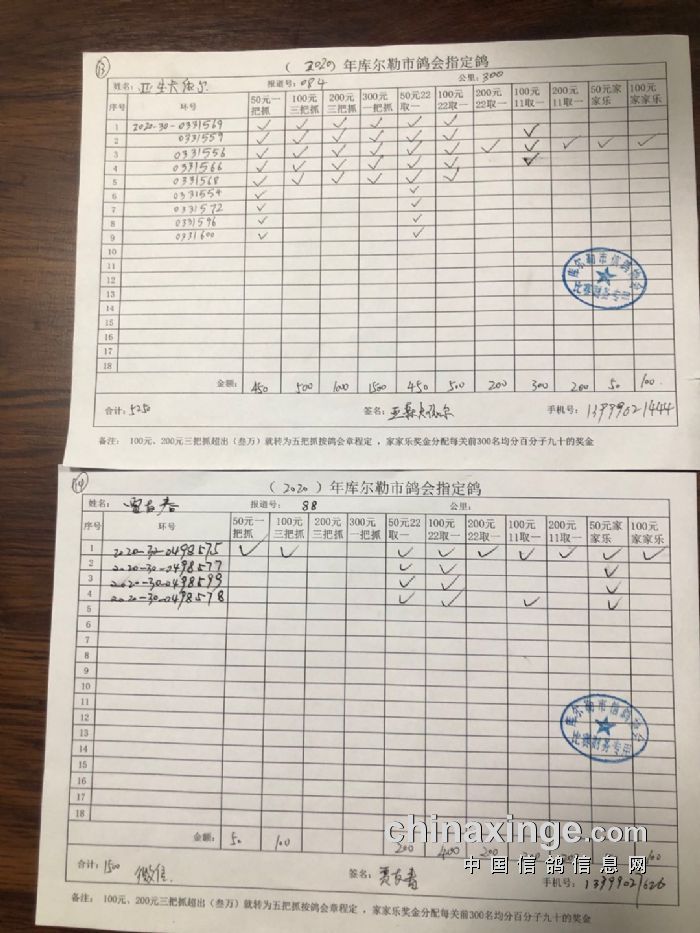 13
（2020）年库尔勒市鸽会指定鸽
姓名： 报道号：084 公里：300
序号 环号 50元一把抓 100元三把抓 200元三把抓 300元一把抓 50元22取一 100元22取一 200元22取一 100元11取一 200元11取一 50元家家乐 100元家家乐
1 2020-30-0331569 ✓ ✓ ✓ ✓ ✓ ✓
2 0331559 ✓ ✓ ✓ ✓ ✓ ✓ ✓
3 0331556 ✓ ✓ ✓ ✓ ✓ ✓ ✓ ✓ ✓ ✓ ✓
4 0331566 ✓ ✓ ✓ ✓ ✓ ✓ ✓
5 0331568 ✓ ✓ ✓ ✓ ✓ ✓
6 0331554 ✓ ✓
7 0331572 ✓ ✓
8 0331596 ✓ ✓
9 0331600 ✓ ✓
10
11
12
13
14
15
16
17
18
库尔勒市信鸽协会
比赛财务专用
金额： 450 500 1000 1500 450 500 200 300 200 50 100
合计：5250 签名： 手机号：13999021444
备注： 100元、200元三把抓超出（叁万）就转为五把抓按鸽会章程定，家家乐奖金分配每关前300名均分百分子九十的奖金
14
（2020）年库尔勒市鸽会指定鸽
姓名： 报道号：88 公里：
序号 环号 50元一把抓 100元三把抓 200元三把抓 300元一把抓 50元22取一 100元22取一 200元22取一 100元11取一 200元11取一 50元家家乐 100元家家乐
1 2020-30-0498575 ✓ ✓ ✓ ✓ ✓ ✓ ✓ ✓ ✓
2 2020-30-0498577 ✓ ✓ ✓
3 2020-30-0498599 ✓ ✓ ✓
4 2020-30-0498578 ✓ ✓ ✓ ✓
5
6
7
8
9
10
11
12
13
14
15
16
17
18
库尔勒市信鸽协会
比赛财务专用
金额： 50 100 200 400 200
chinaxinge.com
中国信鸽信息网
合计：1500 微信 签名： 手机号：
备注： 100元、200元三把抓超出（叁万）就转为五把抓按鸽会章程定，家家乐奖金分配每关前300名均分百分子九十的奖金